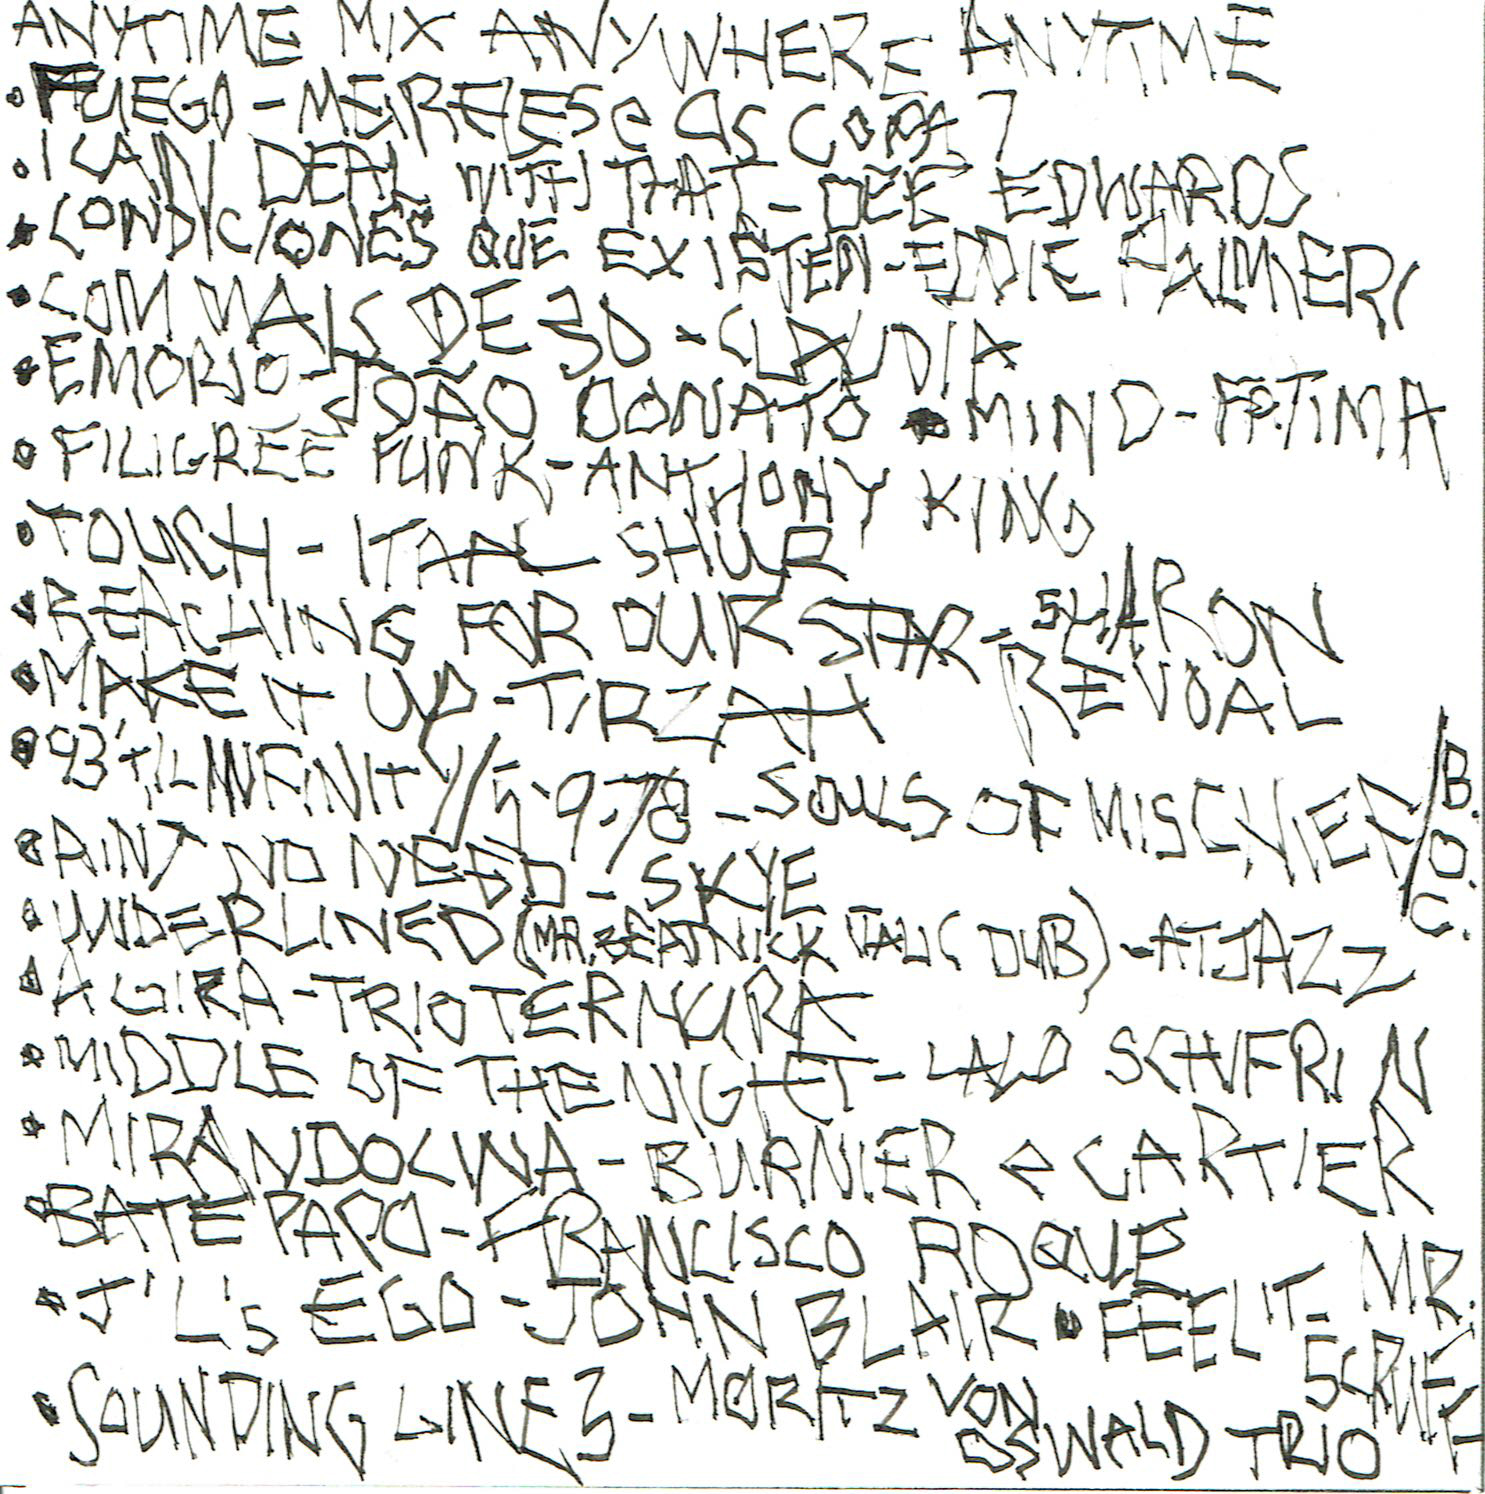 ANYTIME MIX ANYWHERE ANYTIME
• FUEGO - MEIRELES e OS COPA 7
• I CAN DEAL WITH THAT - DEE EDWARDS
• CONDICIONES QUE EXISTEN - EDDIE PALMIERI
• COM MAIS DE 30 - CLAUDIA
• EMORIO - JOÃO DONATO • MIND - FATIMA
• FILIGREE FUNK - ANTHONY KING
• TOUCH - ITAAL SHUR
• REACHING FOR OUR STAR - SHARON REVOAL
• MAKE IT UP - TIRZAH
• 93 'TIL INFINITY / 5.9.78 - SOULS OF MISCHIEF / B.O.C.
• AINT NO NEED - SKYE
• UNDERLINED (MR. BEATNICK ITALIC DUB) - ATJAZZ
• A GIRA - TRIO TERNURA
• MIDDLE OF THE NIGHT - LALO SCHIFRIN
• MIRANDOLINA - BURNIER e CARTIER
• BATE PAPO - FRANCISCO ROQUE
• J'L's EGO - JOHN BLAIR • FEEL IT - MR. SCRUFF
• SOUNDING LINE 3 - MORITZ VON OSWALD TRIO